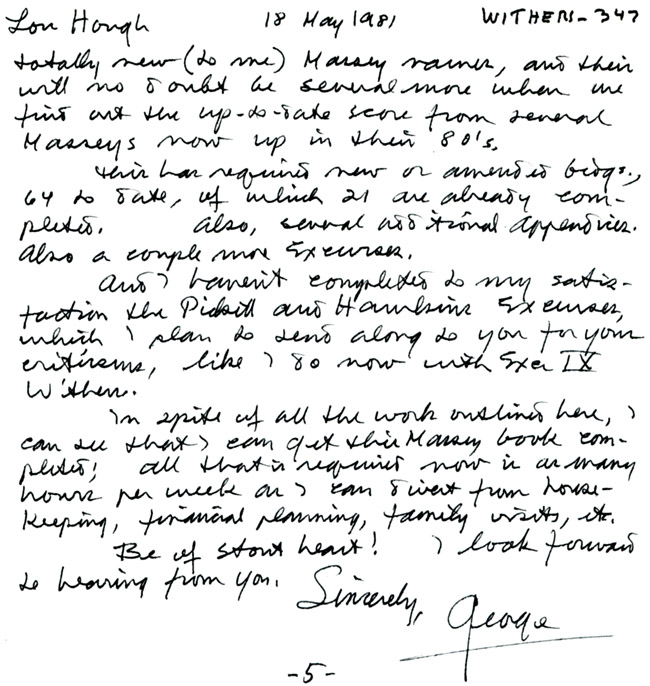 Lon Hough 18 May 1981 WITHERS-347
totally new (to me) Massey names, and their
will no doubt be several more when we
find out the up-to-date score from several
Masseys now up in their 80's.
This has required new or amended biogs.,
64 to date, of which 21 are already com-
pleted. Also, several additional appendices.
Also a couple more Excurses.
And I haven't completed to my satis-
faction the Pickill and Hawkins Excurses,
which I plan to send along to you for your
criticisms, like I do now with Exc IX
Withers.
In spite of all the work outlined here, I
can see that I can get this Massey book com-
pleted; all that is required now is as many
hours per week as I can divert from house-
keeping, financial planning, family visits, etc.
Be of stout heart! I look forward
to hearing from you.
Sincerely,
George
-5-